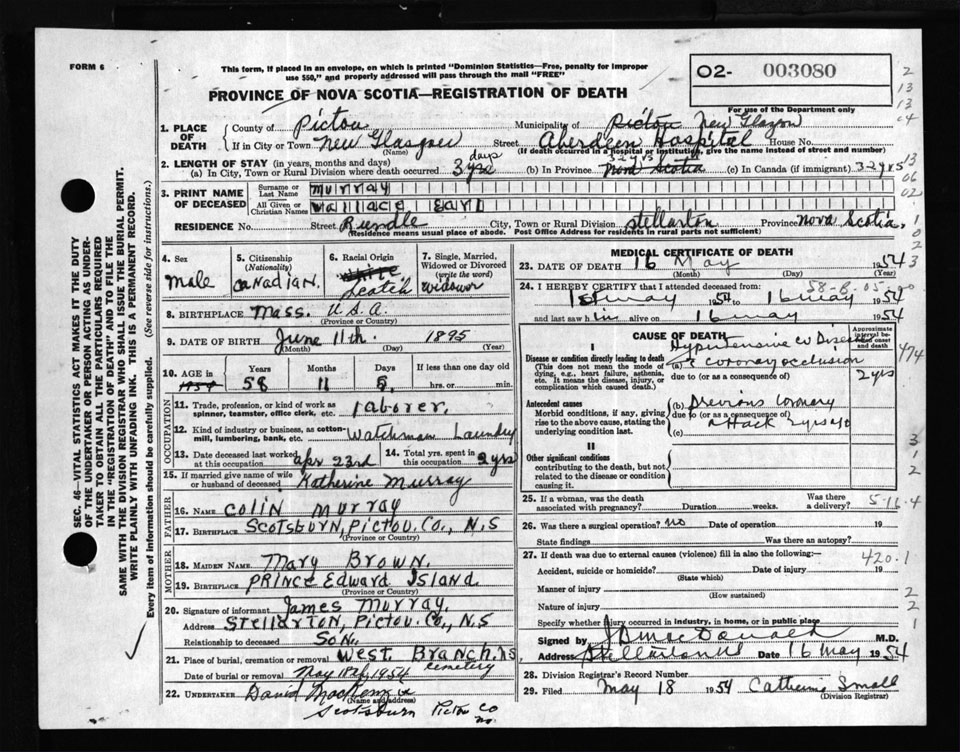 FORM 6
This form, if placed in an envelope, on which is printed "Dominion Statistics—Free, penalty for improper
use $50," and properly addressed will pass through the mail "FREE"
O2- 003080
For use of the Department only
PROVINCE OF NOVA SCOTIA—REGISTRATION OF DEATH
1. PLACE OF DEATH
County of Pictou Municipality of Pictou New Glasgow
If in City or Town New Glasgow Street Aberdeen Hospital House No.
(Name) (If death occurred in a hospital or institution, give the name instead of street and number)
2. LENGTH OF STAY (in years, months and days)
(a) In City, Town or Rural Division where death occurred 3 yrs days (b) In Province 32 yrs Nova Scotia (c) In Canada (if immigrant) 32 yrs
3. PRINT NAME OF DECEASED
Surname or Last Name Murray
All Given or Christian Names Wallace Earl
RESIDENCE No. Street Rundle City, Town or Rural Division Stellarton Province Nova Scotia.
(Residence means usual place of abode. Post Office Address for residents in rural parts not sufficient)
4. Sex
Male
5. Citizenship (Nationality)
Canadian.
6. Racial Origin
White
Scotch
7. Single, Married, Widowed or Divorced (write the word)
Widower
8. BIRTHPLACE Mass. U.S.A.
(Province or Country)
9. DATE OF BIRTH June 11th. 1895
(Month) (Day) (Year)
10. AGE in
1954
Years Months Days If less than one day
58 11 5 hrs. or min.
OCCUPATION
11. Trade, profession, or kind of work as spinner, teamster, office clerk, etc. laborer.
12. Kind of industry or business, as cotton-mill, lumbering, bank, etc. Watchman Laundry
13. Date deceased last worked at this occupation Apr 23rd
14. Total yrs. spent in this occupation 2 yrs
15. If married give name of wife or husband of deceased Katherine Murray
FATHER
16. Name Colin Murray
17. Birthplace Scotsburn, Pictou. Co., N.S
(Province or Country)
MOTHER
18. Maiden Name Mary Brown.
19. Birthplace Prince Edward Island
(Province or Country)
20. Signature of informant James Murray.
Address Stellarton, Pictou. Co., N.S
Relationship to deceased Son.
21. Place of burial, cremation or removal West Branch, NS
cemetery
Date of burial or removal May 18th, 1954
22. UNDERTAKER David MacKenzie
(Name and address)
Scotsburn Pictou Co
NS.
MEDICAL CERTIFICATE OF DEATH
23. DATE OF DEATH 16 May 1954
(Month) (Day) (Year)
24. I HEREBY CERTIFY that I attended deceased from:
1st May 1954 to 16 May 1954
and last saw him alive on 16 May 1954
CAUSE OF DEATH
Approximate interval between onset and death
I
Disease or condition directly leading to death
(This does not mean the mode of dying, e.g., heart failure, asthenia, etc. It means the disease, injury, or complication which caused death.)
(a) Hypertensive CV Disease
& coronary occlusion
due to (or as a consequence of) 2 yrs
Antecedent causes
Morbid conditions, if any, giving rise to the above cause, stating the underlying condition last.
(b) Previous Coronary
due to (or as a consequence of)
attack 2 yrs ago
(c)
II
Other significant conditions
contributing to the death, but not related to the disease or condition causing it.
25. If a woman, was the death associated with pregnancy? Duration weeks. Was there a delivery?
5-16-4
26. Was there surgical operation? No Date of operation 19
State findings Was there an autopsy?
27. If death was due to external causes (violence) fill in also the following:—
420.1
Accident, suicide or homicide? Date of injury 19
(State which)
Manner of injury
(How sustained)
Nature of injury
Specify whether injury occurred in industry, in home, or in public place
Signed by J B MacDonald M.D.
Address Stellarton NS Date 16 May 1954
28. Division Registrar's Record Number
29. Filed May 18 1954 Catherine Small
(Division Registrar)
SEC. 46—VITAL STATISTICS ACT MAKES IT THE DUTY
OF THE UNDERTAKER OR PERSON ACTING AS UNDER-
TAKER TO OBTAIN ALL THE PARTICULARS REQUIRED
IN THE "REGISTRATION OF DEATH" AND TO FILE THE
SAME WITH THE DIVISION REGISTRAR WHO SHALL ISSUE THE BURIAL PERMIT.
WRITE PLAINLY WITH UNFADING INK. THIS IS A PERMANENT RECORD.
Every item of information should be carefully supplied. (See reverse side for instructions.)